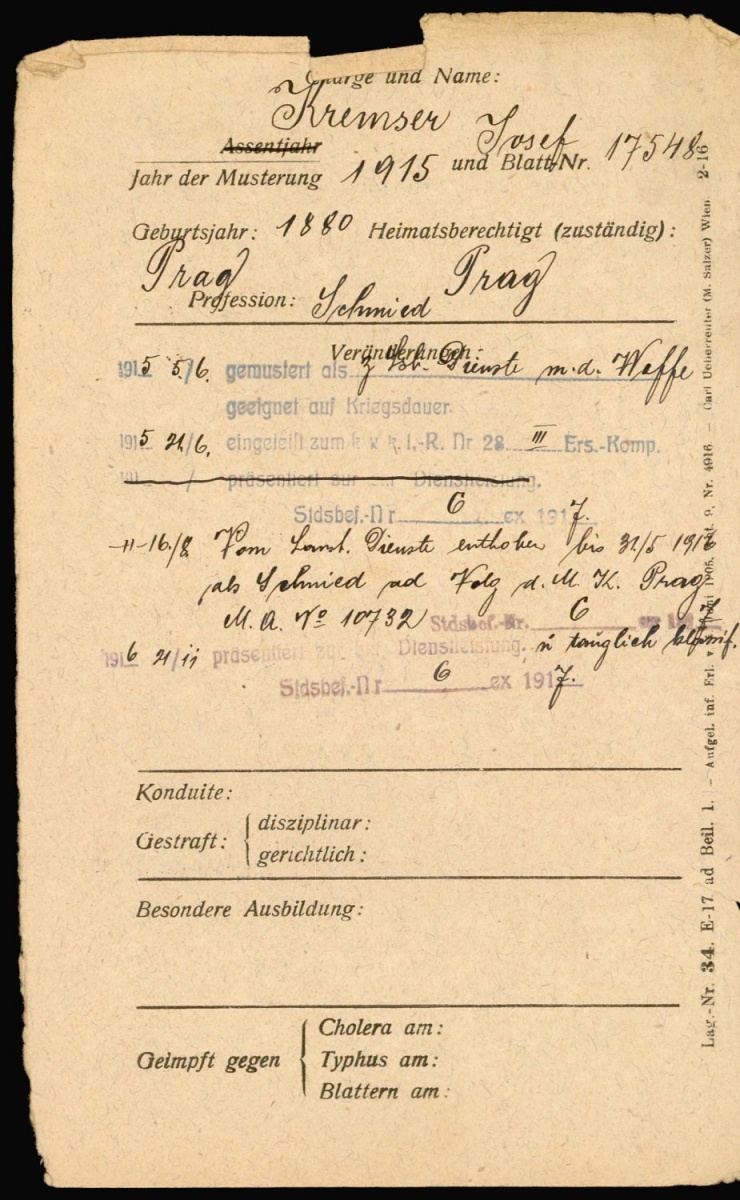 Charge und Name:
Kremser Josef
Assentjahr
Jahr der Musterung 1915 und Blatt-Nr. 17548
Geburtsjahr: 1880 Heimatsberechtigt (zuständig):
Prag Prag
Profession: Schmied
Veränderungen:
1915 5/6. gemustert als z Dienste m. d. Waffe
geeignet auf Kriegsdauer.
1915 21/6. eingeteilt zum k. u. k. I.-R. Nr 28 III Ers.-Komp.
191 / präsentiert zur Dienstleistung.
Stdsbef.-Nr 6 ex 1917.
-II-16./8 Vom Lanst. Dienste enthoben bis 31/5 1916
als Schmied ad Vdg d. M. K. Prag
M. A. No 10732 Stdsbef.-Nr. 6 ex 1917
1916 21/11 präsentiert zur Dienstleistung. u tauglich klassif.
Stdsbef.-Nr 6 ex 1917.
Konduite:
Gestraft: disziplinar:
gerichtlich:
Besondere Ausbildung:
Geimpft gegen Cholera am:
Typhus am:
Blattern am:
Lag.-Nr. 34. E-17 ad Beil. 1. – Aufgel. inf. Erl. v. Nr. 4916. – Carl Ueberreuter (M. Salzer) Wien 2-16